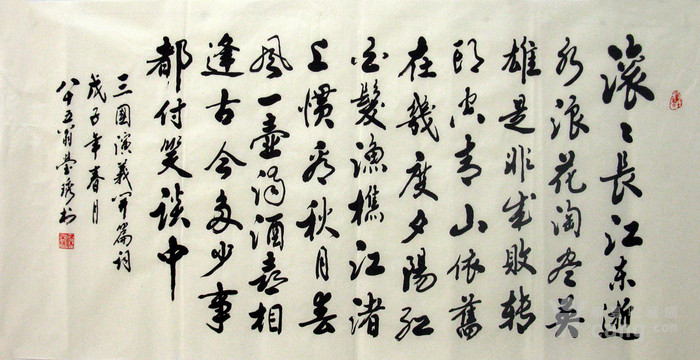 滚々長江东逝
水浪花淘尽英
雄是非成败转
頭空青山依舊
在幾度夕陽红
白髮渔樵江渚
上惯看秋月春
风一壶浊酒喜相
逢古今多少事
都付笑谈中
三國演義开篇词
戊子年春月
八十五翁书